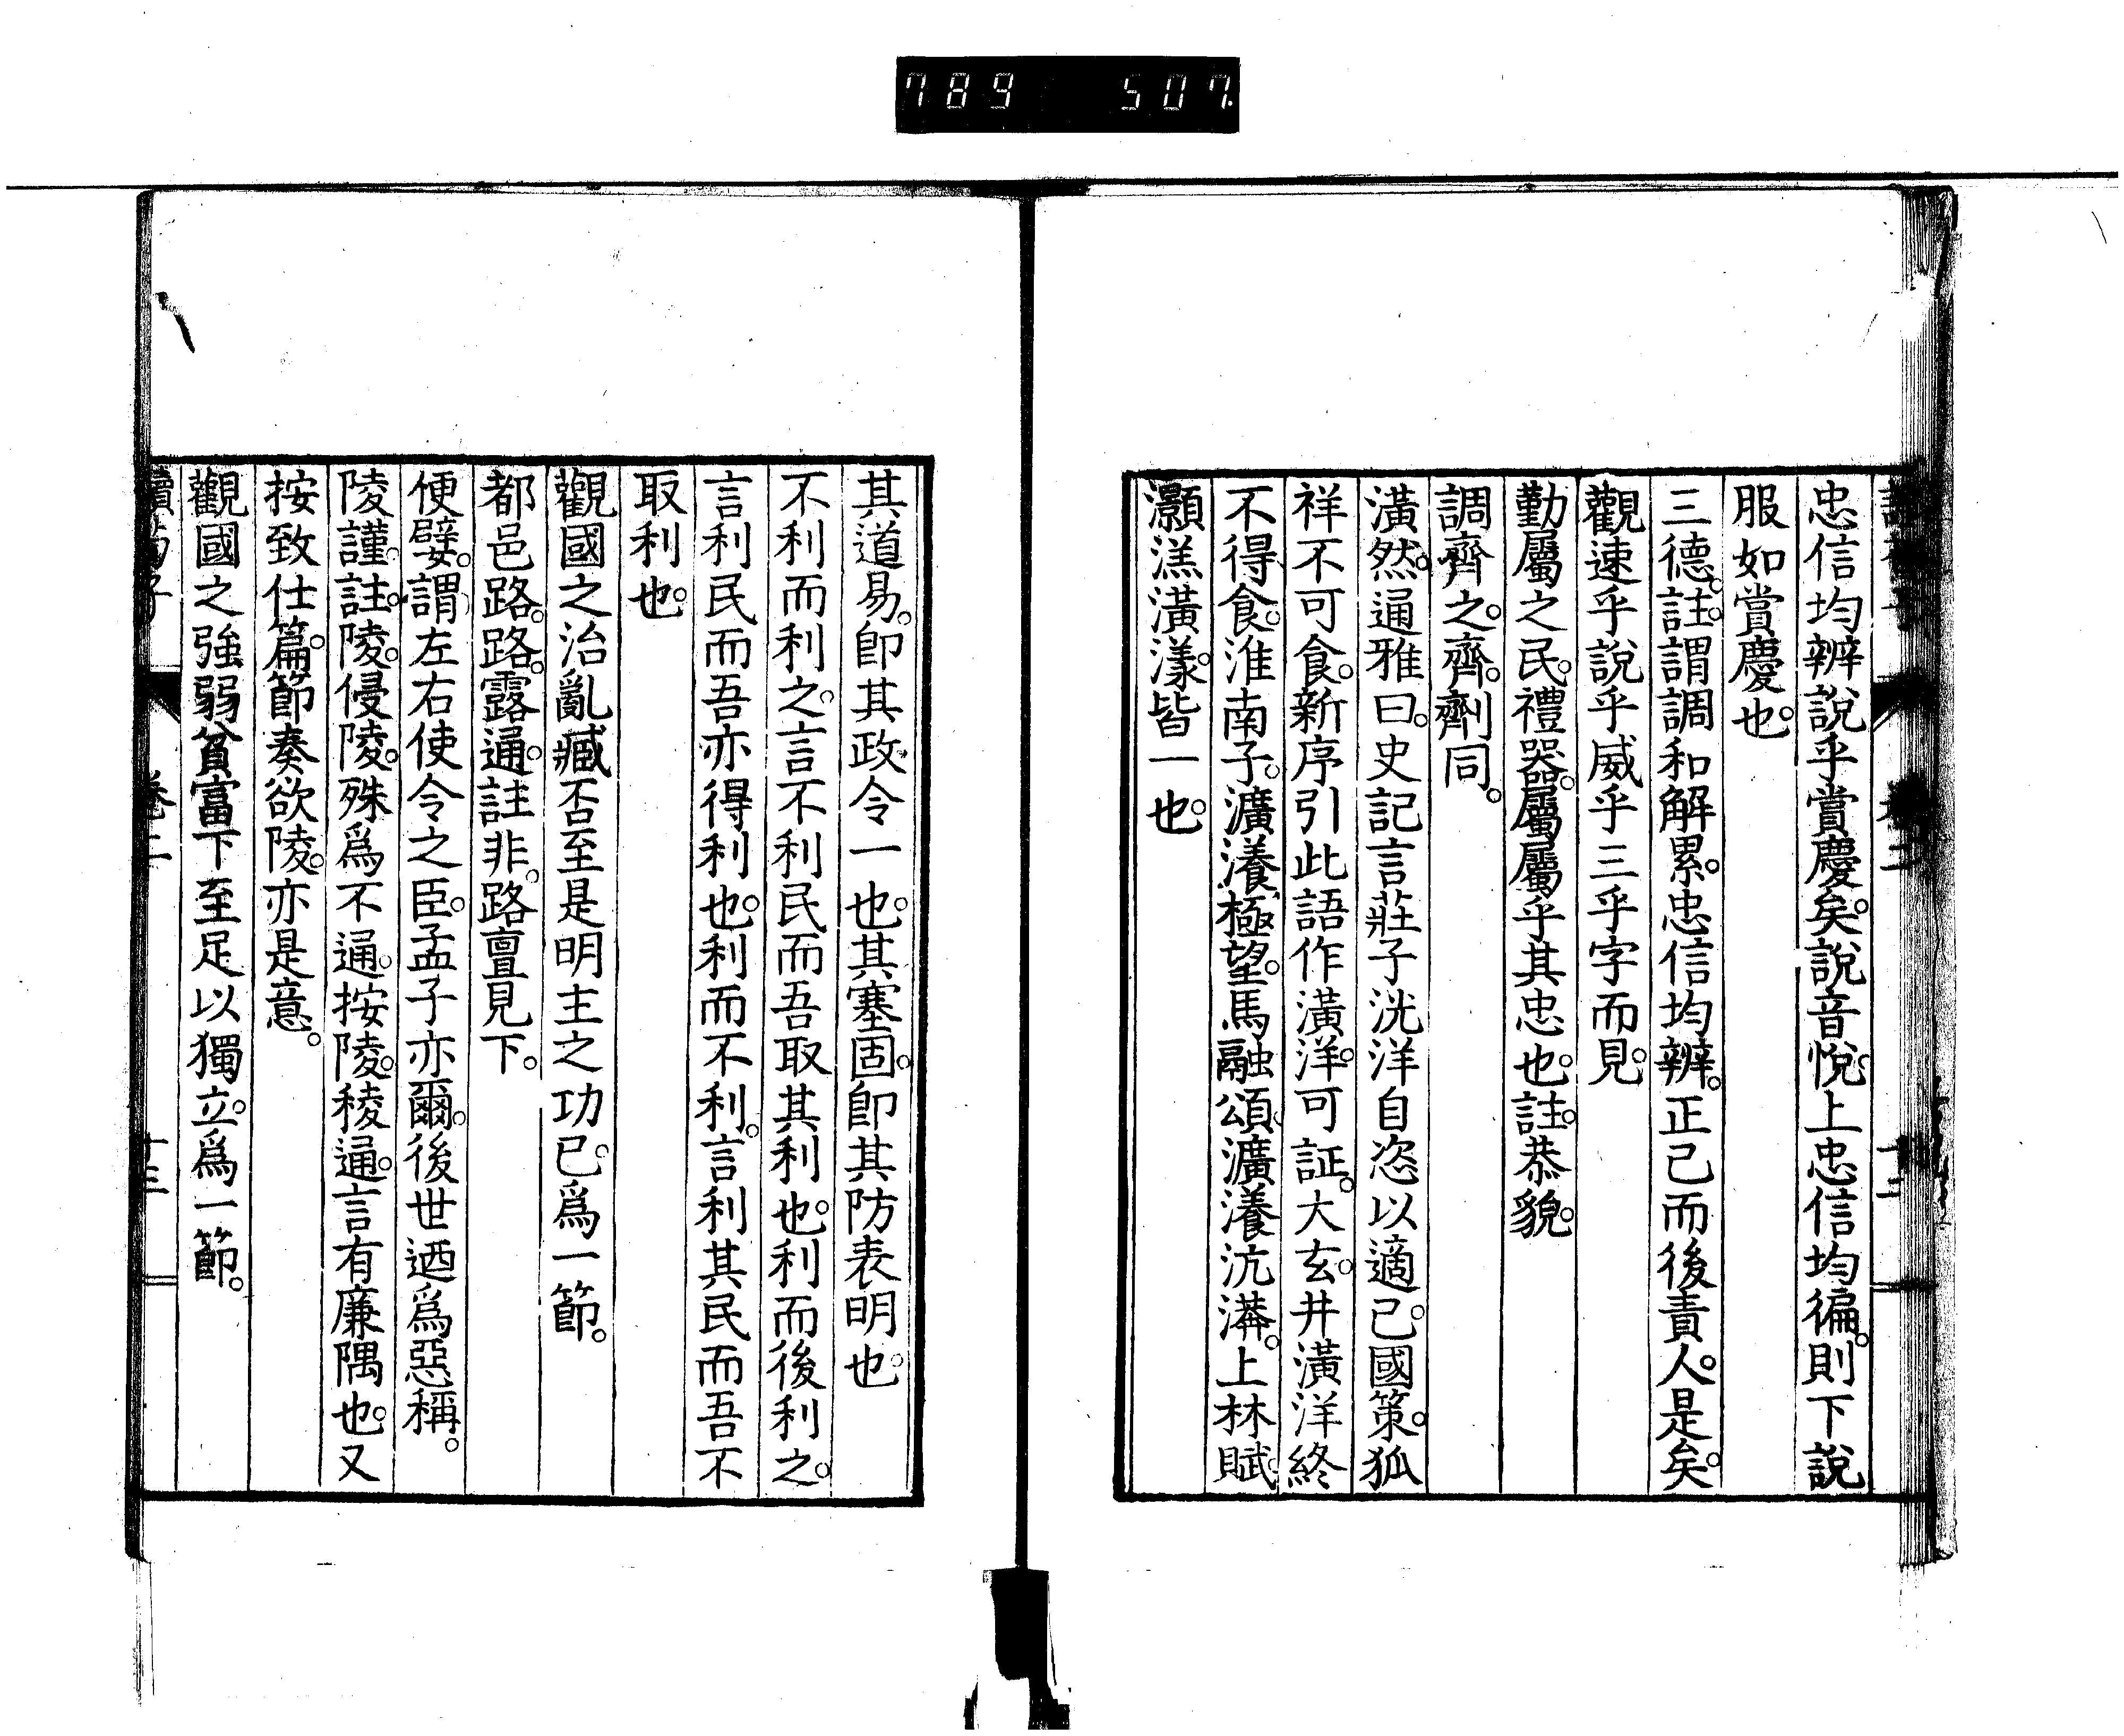 789 507.
忠信均辨說乎賞慶矣。說音悅。上忠信均徧。則下說
服如賞慶也。
三德。註。謂調和解累。忠信均辨。正己而後責人。是矣。
觀速乎說乎威乎三乎字而見。
勤屬之民。禮器。屬屬乎其忠也。註。恭貌。
調齊之。齊。劑同。
潢然。通雅曰。史記言莊子洸洋自恣以適己。國策。狐
祥不可食。新序引此語作潢洋。可証。大玄。井潢洋終
不得食。淮南子。瀇瀁極望。馬融頌。瀇瀁沆漭。上林賦。
灝溔潢漾。皆一也。
其道易。卽其政令一也。其塞固。卽其防表明也。
不利而利之。言不利民而吾取其利也。利而後利之。
言利民而吾亦得利也。利而不利。言利其民而吾不
取利也。
觀國之治亂臧否至是明主之功已。爲一節。
都邑路。路。露通。註非。路亶見下。
便嬖。謂左右使令之臣。孟子亦爾。後世迺爲惡稱。
陵謹。註。陵。侵陵。殊爲不通。按陵。稜通。言有廉隅也。又
按致仕篇。節奏欲陵。亦是意。
觀國之強弱貧富下至足以獨立。爲一節。
卷二
十三